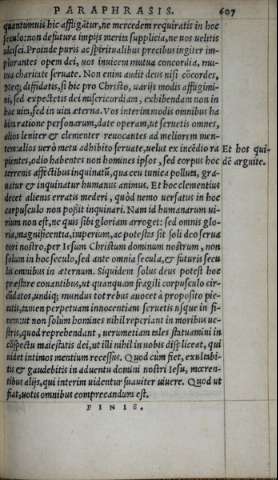 PARAPHRASIS. 607
quantumuis hic affligatur, ne mercedem requiratis in hoc
seculo: non defutura impijs merita supplicia, ne uos uelitis
ulcisci. Proinde puris ac spiritualibus precibus iugiter im-
plorantes opem dei, uos inuicem mutua concordia, mu-
tua charitate seruate. Non enim audit deus nisi cōcordes,
Neq; diffidatis, si hic pro Christo, uarijs modis affligimi-
ni, sed expectetis dei misericordiam, exhibendam non in
hac uita, sed in uita æterna. Vos interim modis omnibus ha
bita ratione personarum, date operam, ut seruetis omnes,
alios leniter & clementer reuocantes ad meliorem men-
tem: alios uerò metu adhibito seruate, uelut ex incēdio ra
pientes, odio habentes non homines ipsos, sed corpus hoc
terrenis affectibus inquinatū, qua ceu tunica pollui, gra-
uatur & inquinatur humanus animus. Et hoc clementius
decet alienis erratis mederi, quòd nemo uersatus in hoc
corpusculo non possit inquinari. Nam id humanarum ui-
rium non est, ne quis sibi gloriam arroget: sed omnis glo-
ria, magnificentia, imperium, ac potestas sit soli deo serua
tori nostro, per Iesum Christum dominum nostrum, non
solum in hoc seculo, sed ante omnia secula, & futuris secu
lis omnibus in æternum. Siquidem solus deus potest hoc
præstare conantibus, ut quanquam fragili corpusculo cir-
cūdatos, undiq; mundus totrebus auocet à proposito pie-
tatis, tamen perpetuam innocentiam seruetis usque in fi-
nem: ut non solum homines nihil reperiant in moribus ue-
stris, quod reprehendant, uerumetiam tales statuamini in
cōspectu maiestatis dei, ut illi nihil in uobis displiceat, qui
uidet intimos mentium recessus. Quod cùm fiet, exultabi-
tis & gaudebitis in aduentu domini nostri Iesu, mœren-
tibus alijs, qui interim uidentur suauiter uiuere. Quod ut
fiat, uotis omnibus comprecandum est.
FINIS.
Et hos qui-
dē arguite.